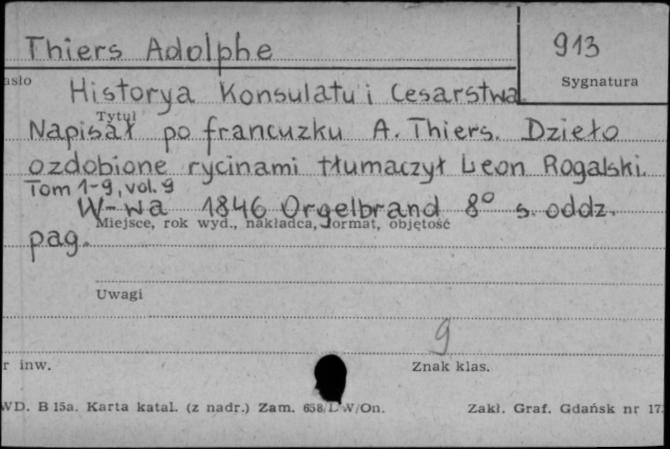 Thiers Adolphe
913
asło
Sygnatura
Historya Konsulatu i Cesarstwa
Tytuł
Napisał po francuzku A. Thiers. Dzieło
ozdobione rycinami tłumaczył Leon Rogalski.
Tom 1-9, vol. 9
W-wa 1846 Orgelbrand 8° s. oddz.
Miejsce, rok wyd., nakładca, format, objętość
pag.
Uwagi
9
r inw.
Znak klas.
WD. B 15a. Karta katal. (z nadr.) Zam. 658/DW/On.
Zakł. Graf. Gdańsk nr 17